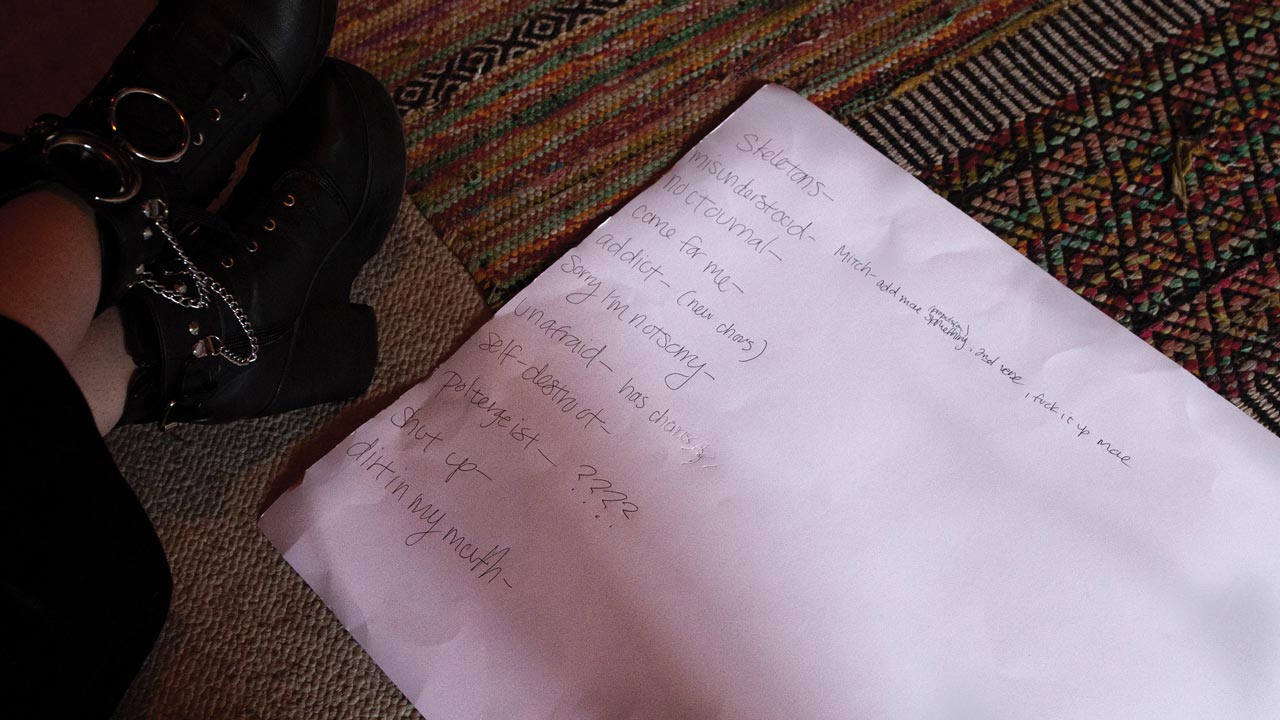 Skeletons-
misunderstood- Mitch- add more (production) something, 2nd verse, fuck it up more
nocturnal-
come for me-
addict- (new chors)
Sorry I'm not sorry-
unafraid- has
self-destruct-
poltergeist- ????
Shut up-
dirt in my mouth-